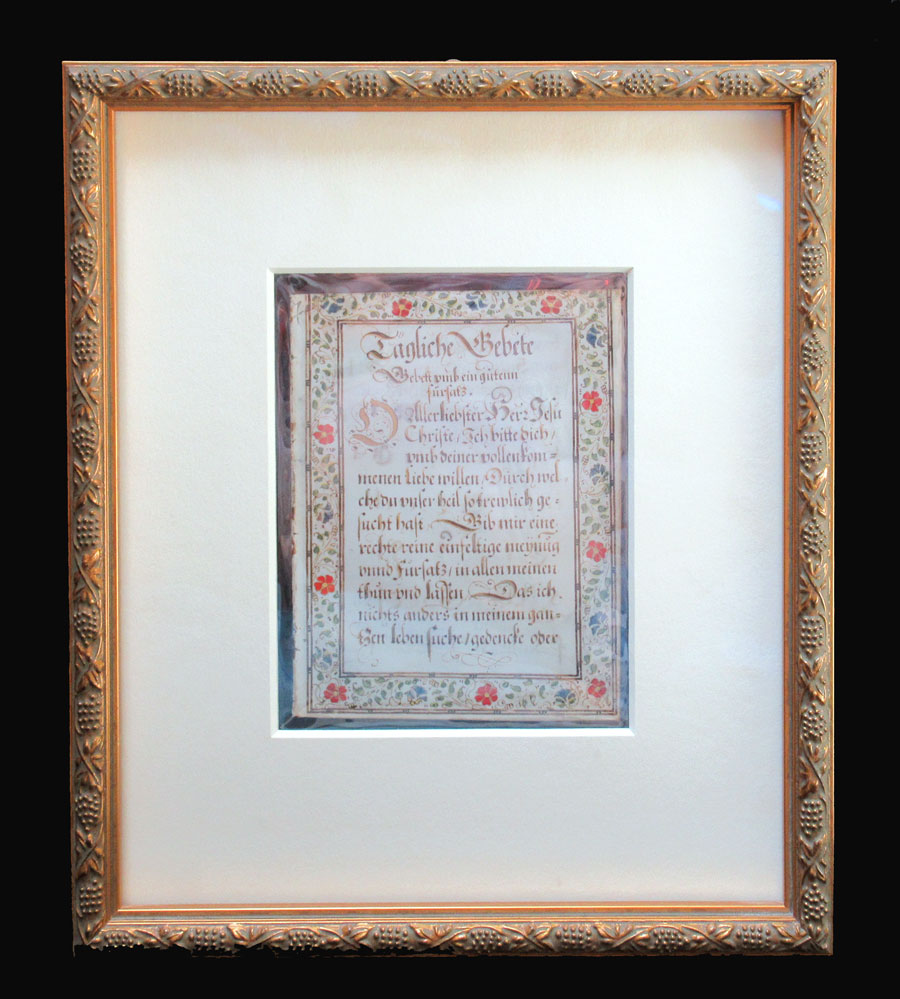 Tägliche Gebete
Gebett vmb ein gütenn
fürsatz.
O Allerliebster Herr Jesu
Christe / Ich bitte dich /
vmb deiner vollenkom=
menen Liebe willen / Dürch wel-
che du vnser heil so trewlich ge-
sucht hast. Gib mir eine
rechte reine einfeltige meynüg
vnnd Fürsatz / in allen meinen
thün vnd lassen. Das ich
nichts anders in meinem gan-
tzen leben suche / gedencke oder